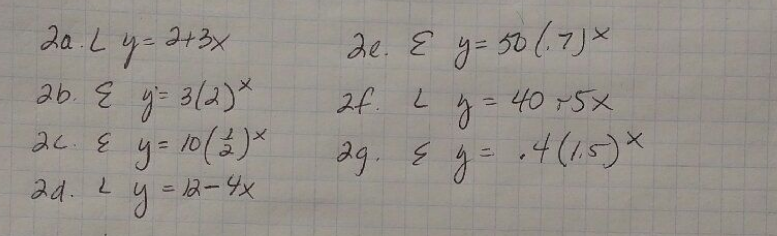 2a. L y = 2+3x
2b. E y = 3(2)^x
2c. E y = 10(1/2)^x
2d. L y = 12-4x
2e. E y = 50(.7)^x
2f. L y = 40+5x
2g. E y = .4(1.5)^x